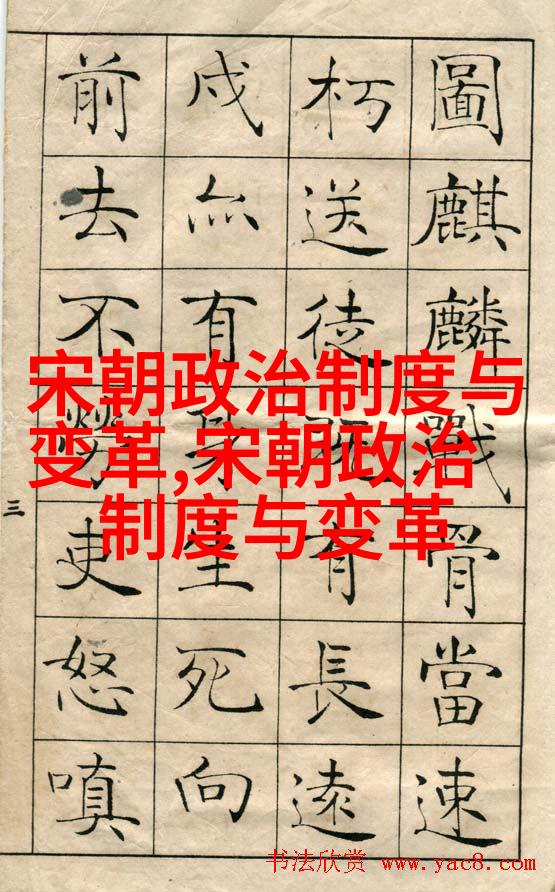 宋朝政治制度与
变革,宋朝政治
制度与变革
圖麒麟戰骨當速
朽送徒既有長遠
戍亦有身生死向
前去不勞吏怒嗔
三
书法欣赏 www.yac8.com